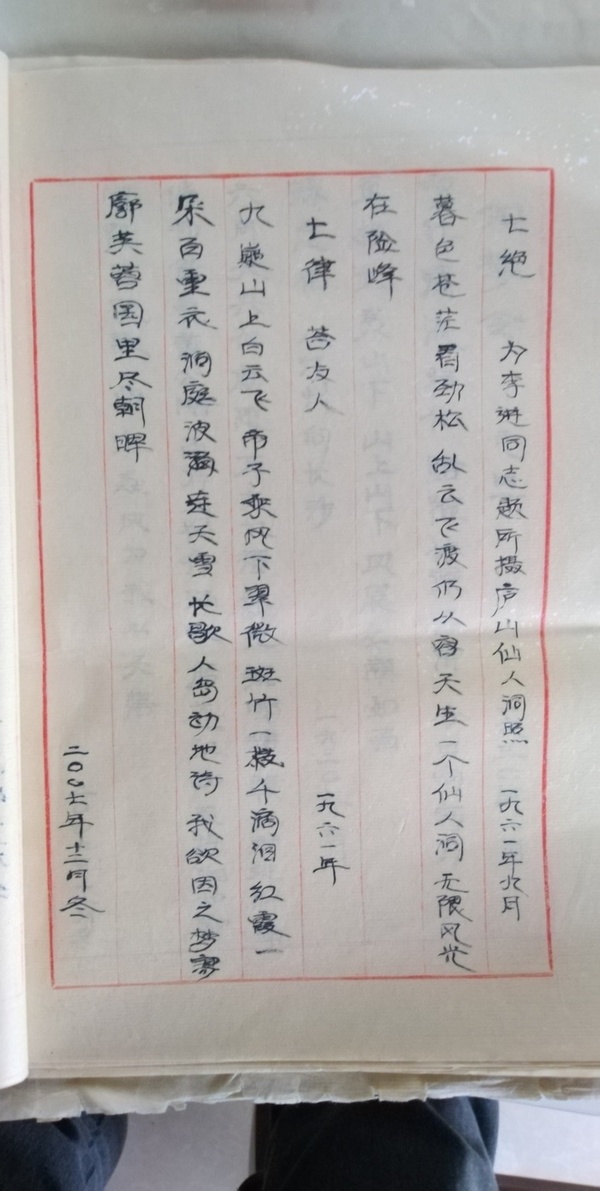 七绝 为李进同志题所摄庐山仙人洞照 一九六一年九月
暮色苍茫看劲松 乱云飞渡仍从容 天生一个仙人洞 无限风光
在险峰
七律 荅友人 一九六一年
九嶷山上白云飞 帝子乘风下翠微 斑竹一枝千滴泪 红霞一
朵百重衣 洞庭波涌连天雪 长歌人岛动地诗 我欲因之梦寥
廓芙蓉国里尽朝晖
二〇〇七年十二月冬